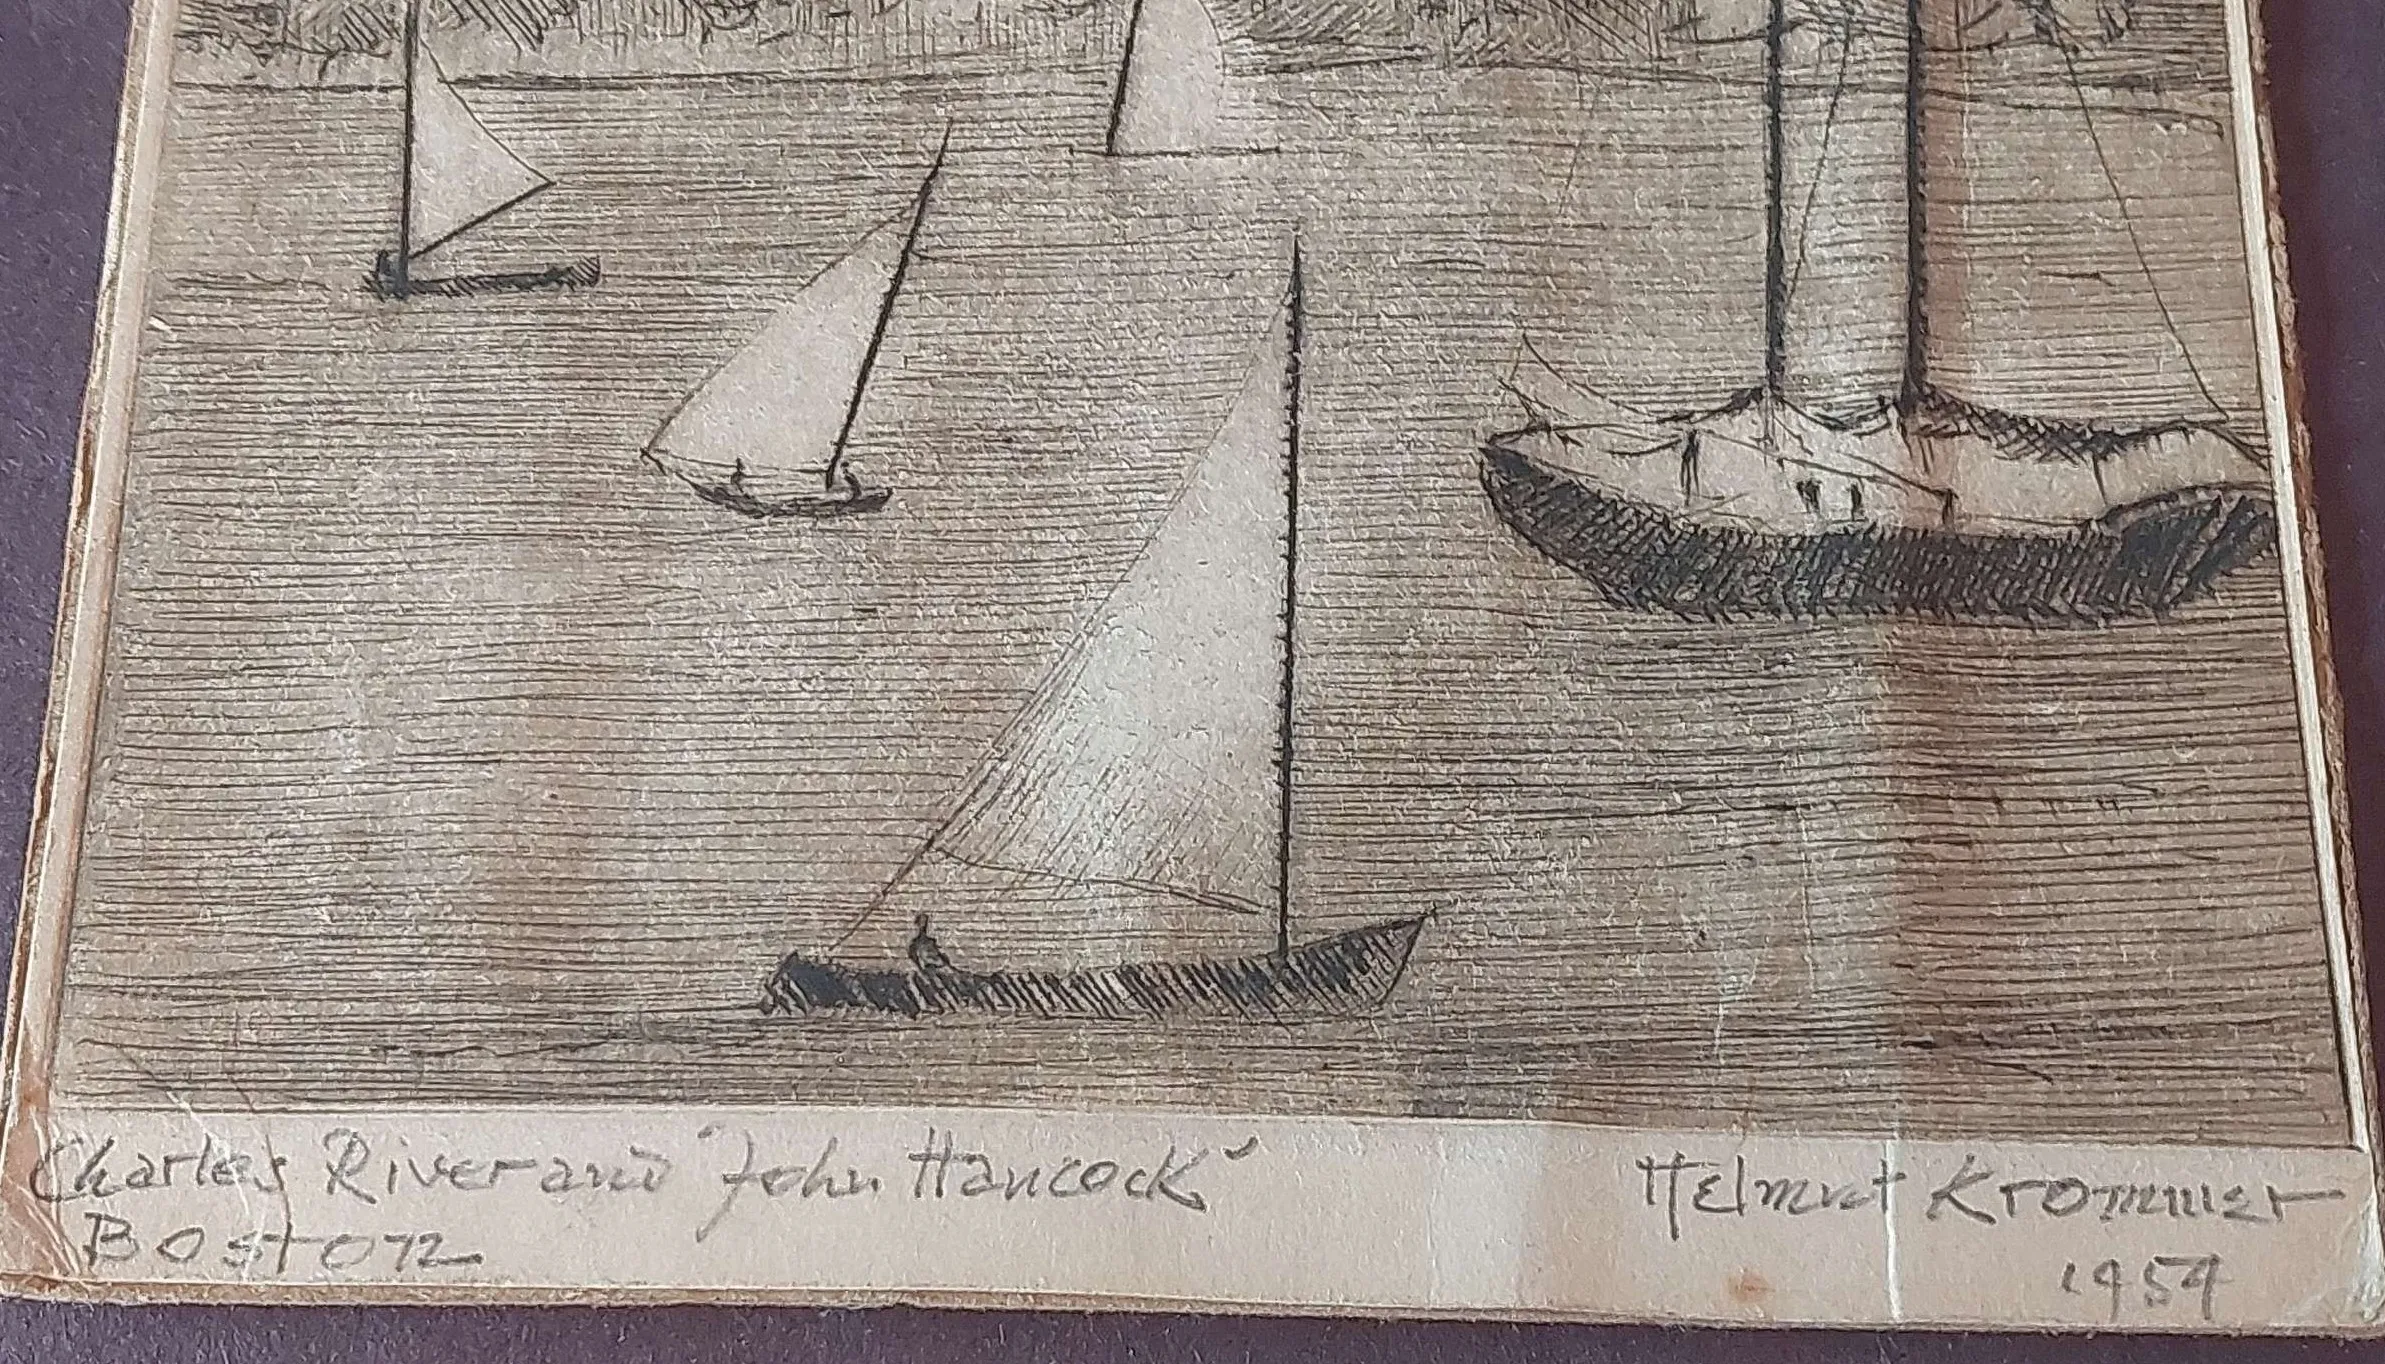 Charles River and "John Hancock"
Boston
Helmut Krommer
1954